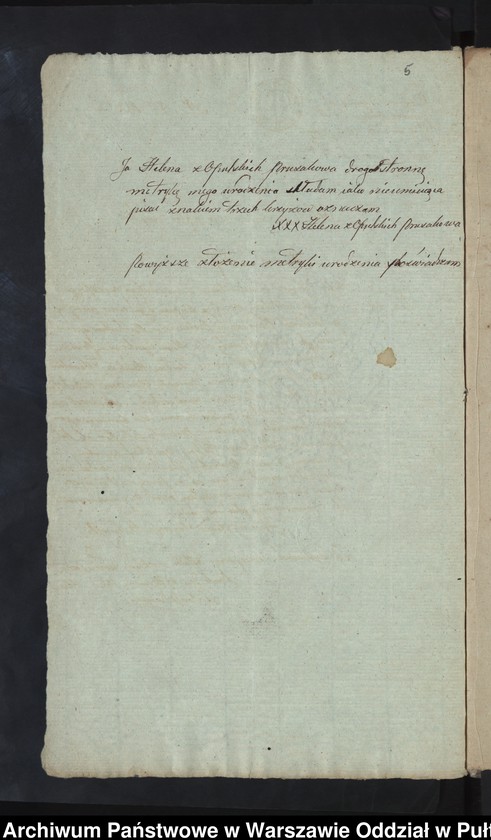 5
Ja Helena z Opulskich Prusakowa drogo stronną
metrykę mego urodzenia składam iako nieumieiąca
pisać znakiem trzech krzyżów oznaczam
XXX Helena z Opulskich Prusakowa
Powyższe złożenie metryki urodzenia poświadczam
Archiwum Państwowe w Warszawie Oddział w Puł